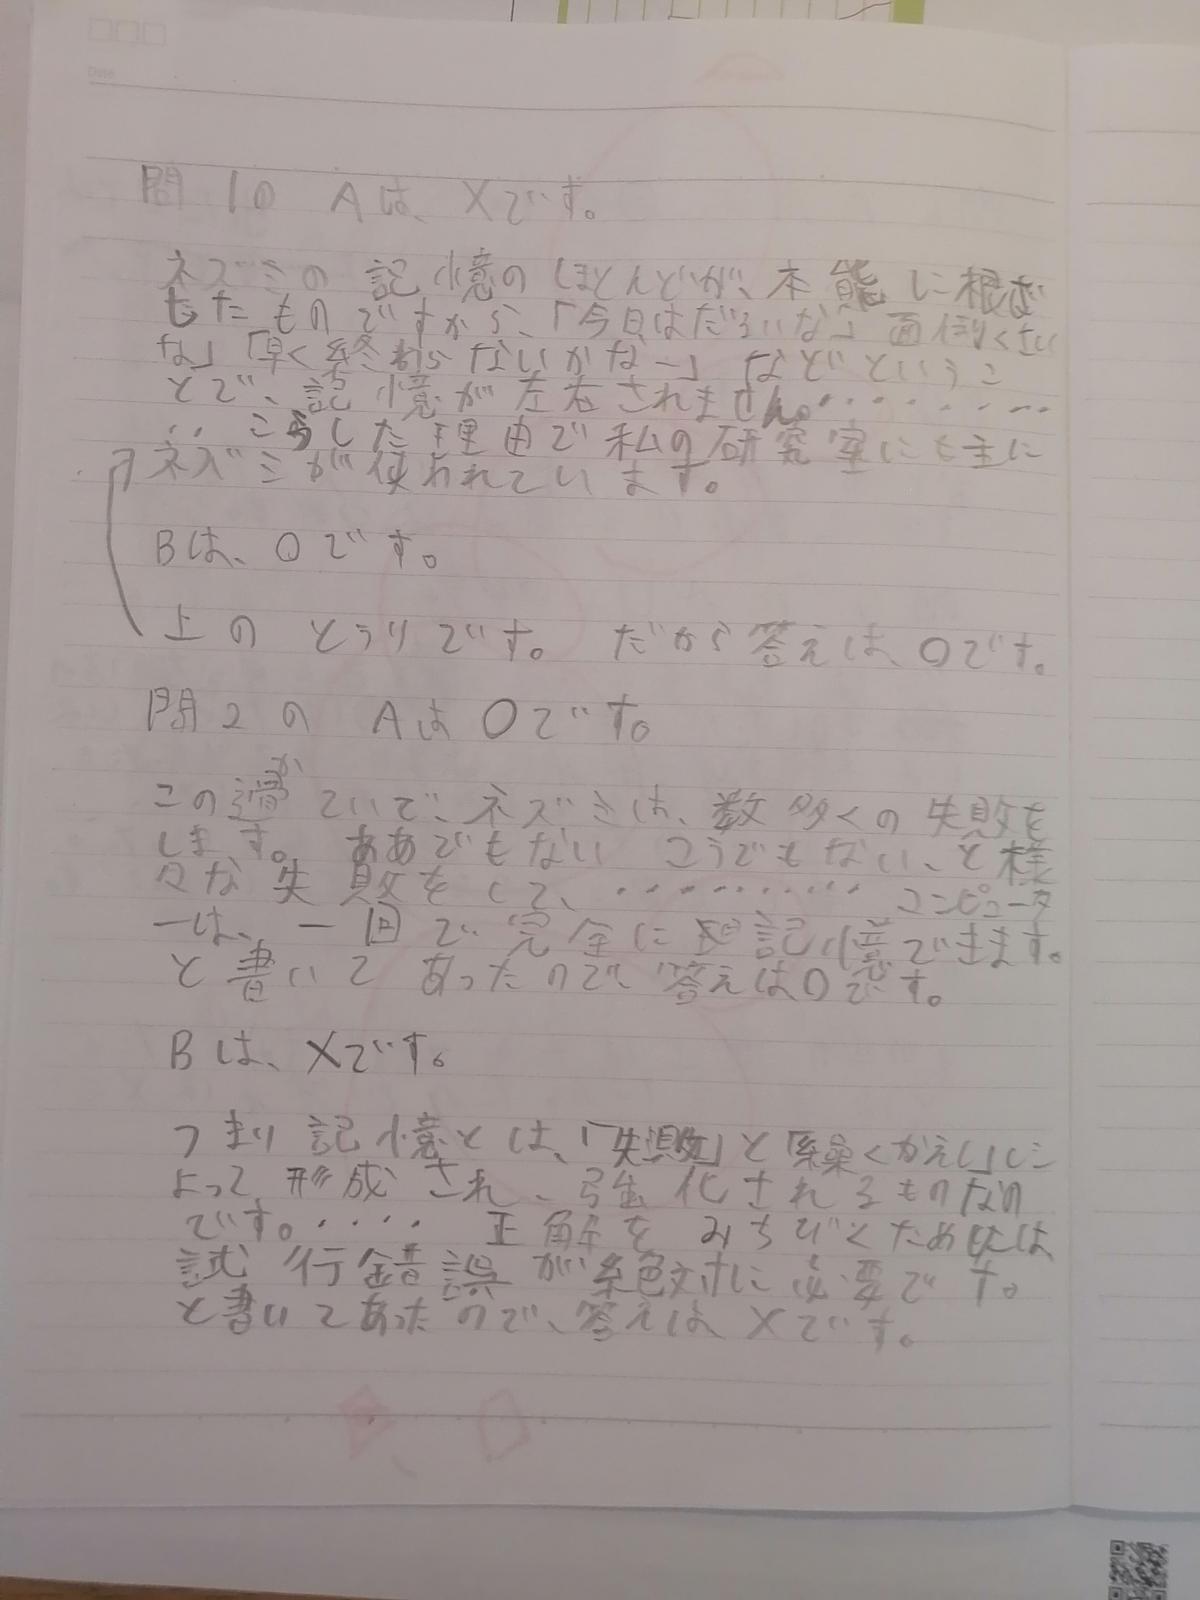 Date
問1の Aは、Xです。
ネズミの記憶のほとんどが、本能に根ざ
したものですから、「今日はだるいな」面倒くさい
な」「早く終わらないかなー」などというこ
とで、記憶が左右されません。‥‥‥‥‥
‥こうした理由で私の研究室にも主に
ネズミが使われています。
Bは、〇です。
上のとうりです。だから答えは〇です。
問2の Aは〇です。
か
この過ていで、ネズミは、数多くの失敗を
します。ああでもないこうでもない、と様
々な失敗をして、‥‥‥‥‥‥コンピュータ
ーは、一回で完全に記憶できます。
と書いてあったので、答えは〇です。
Bは、Xです。
つまり記憶とは、「失敗」と「繰くかえし」に
よって、形成され、強化されるものなの
です。‥‥正解をみちびくためには
試行錯誤が絶対に必要です。
と書いてあったので、答えはXです。